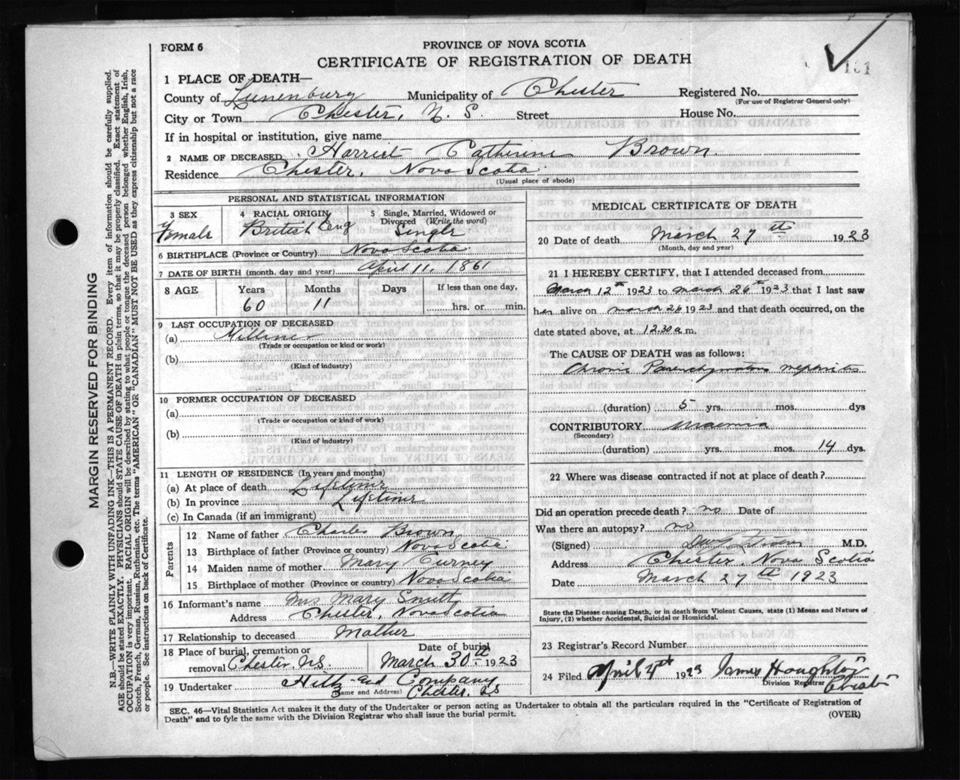 FORM 6
PROVINCE OF NOVA SCOTIA
CERTIFICATE OF REGISTRATION OF DEATH
1 PLACE OF DEATH—
County of Lunenburg Municipality of Chester Registered No.
(For use of Registrar General only)
City or Town Chester, N. S. Street House No.
If in hospital or institution, give name
2 NAME OF DECEASED Harriet Catherine Brown
Residence Chester, Nova Scotia
(Usual place of abode)
PERSONAL AND STATISTICAL INFORMATION
3 SEX 4 RACIAL ORIGIN 5 Single, Married, Widowed or Divorced (Write the word)
Female British Eng Single
6 BIRTHPLACE (Province or Country) Nova Scotia
7 DATE OF BIRTH (month, day and year) April 11, 1861
8 AGE Years Months Days If less than one day,
60 11 hrs. or min.
9 LAST OCCUPATION OF DECEASED
(a) Milliner
(Trade or occupation or kind or work)
(b)
(Kind of industry)
10 FORMER OCCUPATION OF DECEASED
(a)
(Trade or occupation or kind of work)
(b)
(Kind of industry)
11 LENGTH OF RESIDENCE (In years and months)
(a) At place of death Lifetime
(b) In province Lifetime
(c) In Canada (if an immigrant)
Parents
12 Name of father Charles Brown
13 Birthplace of father (Province or country) Nova Scotia
14 Maiden name of mother Mary
15 Birthplace of mother (Province or country) Nova Scotia
16 Informant's name Mrs Mary Smith
Address Chester, Nova Scotia
17 Relationship to deceased Mother
18 Place of burial, cremation or removal Chester N.S. Date of burial March 30th 1923
19 Undertaker Company
(Name and Address) Chester N S
MEDICAL CERTIFICATE OF DEATH
20 Date of death March 27th 1923
(Month, day and year)
21 I HEREBY CERTIFY, that I attended deceased from
March 12th 1923 to March 26th 1923 that I last saw
her alive on March 26 1923 and that death occurred, on the
date stated above, at 12.30 a.m.
The CAUSE OF DEATH was as follows:
Chronic Parenchymatous nephritis
(duration) 5 yrs. mos. dys
CONTRIBUTORY
(Secondary)
(duration) yrs. mos. 14 dys.
22 Where was disease contracted if not at place of death?
Did an operation precede death? no Date of
Was there an autopsy? no
(Signed) M.D.
Address Chester, Nova Scotia
Date March 27th 1923
State the Disease causing Death, or in death from Violent Causes, state (1) Means and Nature of
Injury, (2) whether Accidental, Suicidal or Homicidal.
23 Registrar's Record Number
24 Filed April 4th 1923 Houghton
Division Registrar
Chester
SEC. 46—Vital Statistics Act makes it the duty of the Undertaker or person acting as Undertaker to obtain all the particulars required in the "Certificate of Registration of
Death" and to fyle the same with the Division Registrar who shall issue the burial permit.
(OVER)
MARGIN RESERVED FOR BINDING
N.B.—WRITE PLAINLY WITH UNFADING INK—THIS IS A PERMANENT RECORD. Every item of information should be carefully supplied.
AGE should be stated EXACTLY. PHYSICIANS should STATE CAUSE OF DEATH in plain terms, so that it may be properly classified. Exact statement of
OCCUPATION is very important. RACIAL ORIGIN will be described by stating to what people or tongue the deceased person belonged whether English, Irish,
Scotch, French, German, Russian, Ruthenian, etc. The terms "AMERICAN" OR "CANADIAN" MUST NOT BE USED as they express citizenship but not a race
or people. See instructions on back of Certificate.